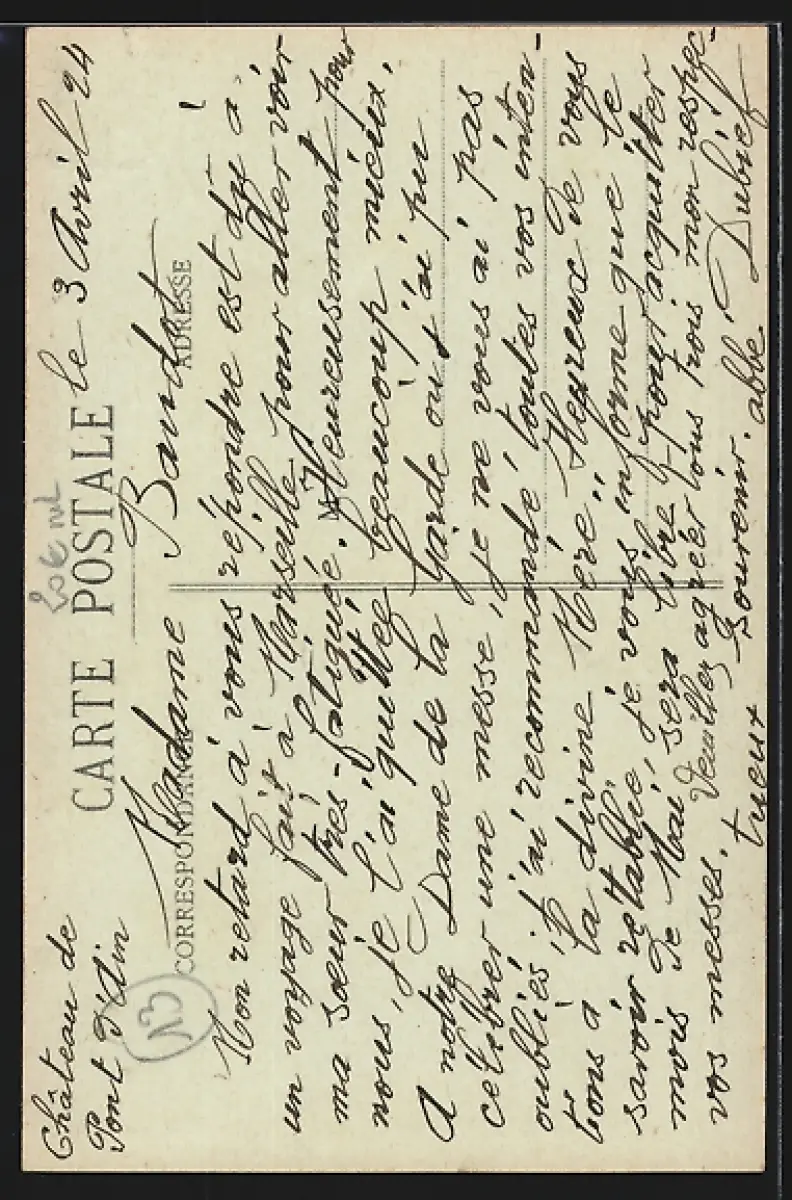 Château de
Pont d'Ain
le 3 Avril 24
CARTE POSTALE
13
Madame Baudot
CORRESPONDANCE
ADRESSE
Mon retard à vous répondre est dû à
un voyage fait à Marseille pour aller voir
ma sœur très-fatiguée. Heureusement pour
nous, je l'ai quittée beaucoup mieux.
A notre Dame de la Garde où j'ai pu
célébrer une messe, je ne vous ai pas
oubliés; j'ai recommandé toutes vos inten-
tions à la divine Mère. Heureux de vous
savoir rétablie, je vous informe que le
mois de Mai, sera libre pour acquitter
vos messes. Veuillez agréer tous trois mon respec-
tueux souvenir. abbé Dubief